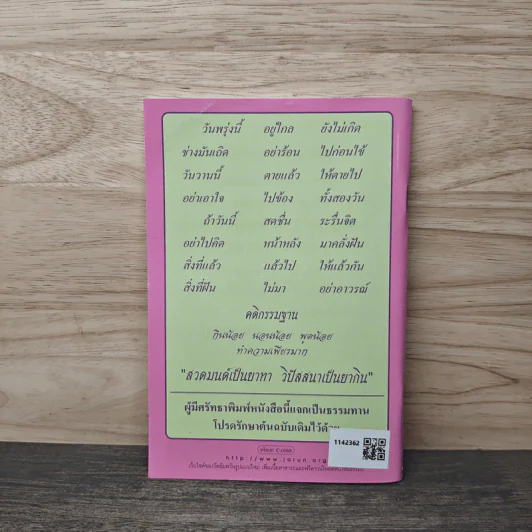 วันพรุ่งนี้ อยู่ไกล ยังไม่เกิด
ช่างมันเถิด อย่าร้อน ไปก่อนไข้
วันวานนี้ ตายแล้ว ให้ตายไป
อย่าเอาใจ ไปข้อง ทั้งสองวัน
ถ้าวันนี้ สดชื่น ระรื่นจิต
อย่าไปคิด หน้าหลัง มาคลั่งฝัน
สิ่งที่แล้ว แล้วไป ให้แล้วกัน
สิ่งที่ฝัน ไม่มา อย่าอาวรณ์
คติกรรมฐาน
กินน้อย นอนน้อย พูดน้อย
ทำความเพียรมาก
"สวดมนต์เป็นยาทา วิปัสสนาเป็นยากิน"
ผู้มีศรัทธาพิมพ์หนังสือนี้แจกเป็นธรรมทาน
โปรดรักษาต้นฉบับเดิมไว้ด้วย
1142362
http://www.jarun.org